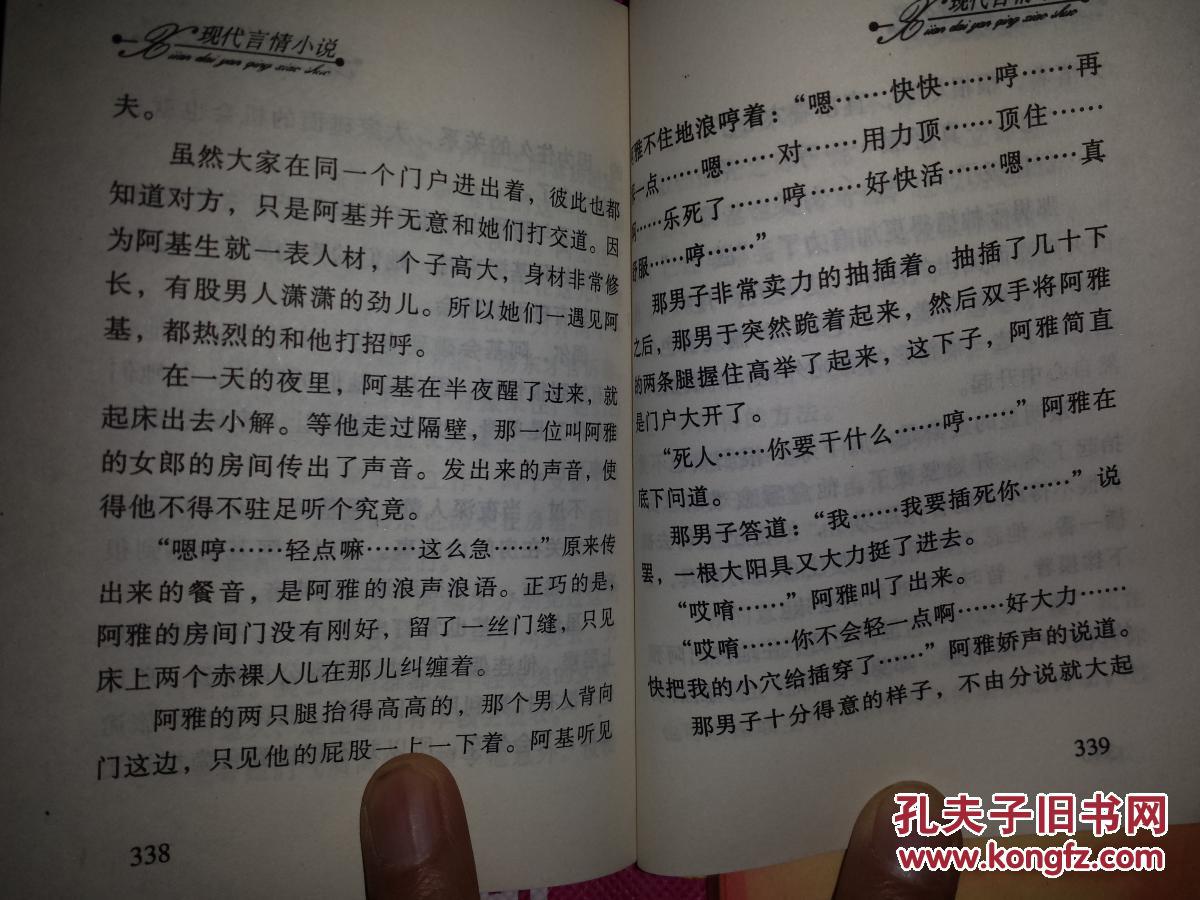 现代言情小说
xian dai yan qing xiao shuo
夫。
虽然大家在同一个门户进出着，彼此也都
知道对方，只是阿基并无意和她们打交道。因
为阿基生就一表人材，个子高大，身材非常修
长，有股男人潇潇的劲儿。所以她们一遇见阿
基，都热烈的和他打招呼。
在一天的夜里，阿基在半夜醒了过来，就
起床出去小解。等他走过隔壁，那一位叫阿雅
的女郎的房间传出了声音。发出来的声音，使
得他不得不驻足听个究竟。
“嗯哼……轻点嘛……这么急……”原来传
出来的餐音，是阿雅的浪声浪语。正巧的是，
阿雅的房间门没有刚好，留了一丝门缝，只见
床上两个赤裸人儿在那儿纠缠着。
阿雅的两只腿抬得高高的，那个男人背向
门这边，只见他的屁股一上一下着。阿基听见
338
现代言情小说
xian dai yan qing xiao shuo
雅不住地浪哼着：“嗯……快快……哼……再
一点……嗯……对……用力顶……顶住……
……乐死了……哼……好快活……嗯……真
舒服……哼……”
那男子非常卖力的抽插着。抽插了几十下
之后，那男于突然跪着起来，然后双手将阿雅
的两条腿握住高举了起来，这下子，阿雅简直
是门户大开了。
“死人……你要干什么……哼……”阿雅在
底下问道。
那男子答道：“我……我要插死你……”说
罢，一根大阳具又大力挺了进去。
“哎唷……”阿雅叫了出来。
“哎唷……你不会轻一点啊……好大力……
快把我的小穴给插穿了……”阿雅娇声的说道。
那男子十分得意的样子，不由分说就大起
339
孔夫子旧书网
www.kongfz.com